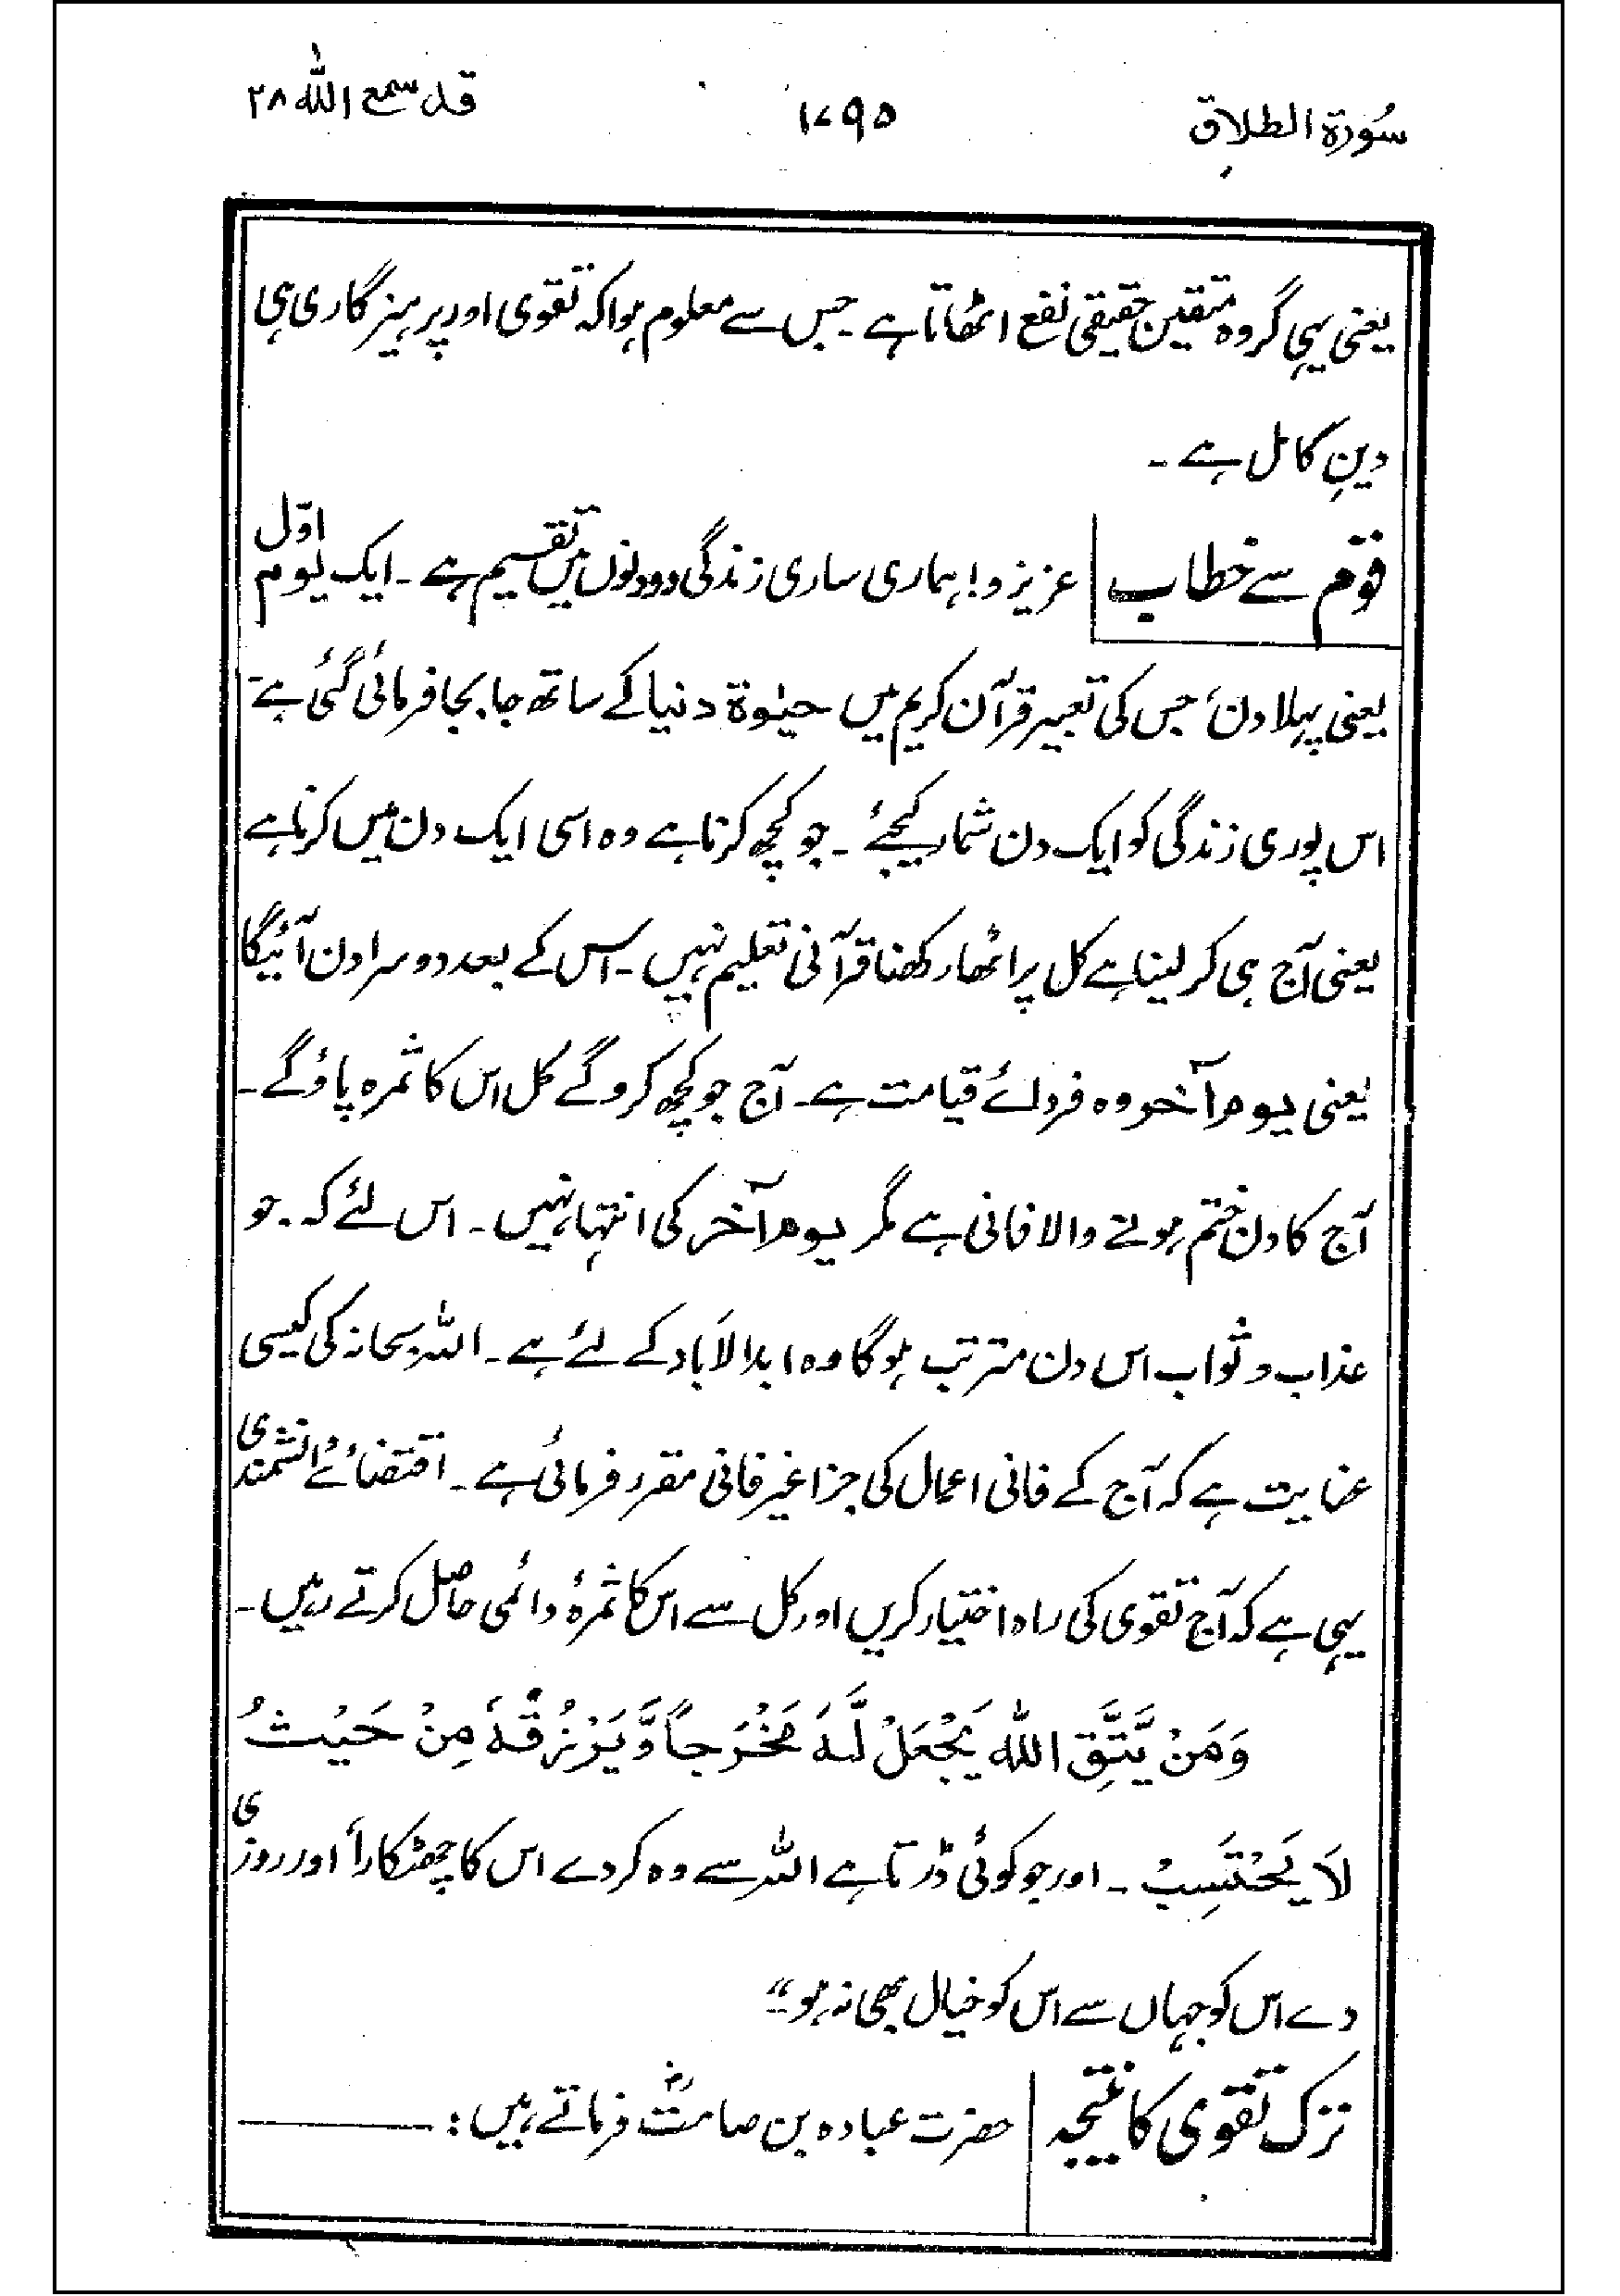 سُورة الطلاق ۱۷۹۵ قد سمع اللہ ۲۸
یعنی یہی گروہ متقین حقیقی نفع اٹھاتا ہے ۔ جس سے معلوم ہوا کہ تقوی اور پرہیز گاری ہی
دینِ کامل ہے ۔
قوم سے خطاب عزیزو! ہماری ساری زندگی دو دنوں میں تقسیم ہے ۔ ایک یوم اوّل
یعنی پہلا دن، جس کی تعبیر قرآن کریم میں حیٰوۃ دنیا کے ساتھ جا بجا فرمائی گئی ہے ۔
اس پوری زندگی کو ایک دن شمار کیجئے ۔ جو کچھ کرنا ہے وہ اسی ایک دن میں کرنا ہے
یعنی آج ہی کر لینا ہے کل پر اٹھا رکھنا قرآنی تعلیم نہیں ۔ اس کے بعد دوسرا دن آئیگا
یعنی یوم آخر وہ فردائے قیامت ہے ۔ آج جو کچھ کرو گے کل اس کا ثمرہ پاؤ گے ۔
آج کا دن ختم ہونے والا فانی ہے مگر یوم آخر کی انتہا نہیں ۔ اس لئے کہ جو
عذاب و ثواب اس دن مترتب ہوگا وہ ابدالآباد کے لئے ہے ۔ اللہ سبحانہ کی کیسی
عنایت ہے کہ آج کے فانی اعمال کی جزا غیر فانی مقرر فرمائی ہے ۔ اقتضائے دانشمندی
یہی ہے کہ آج تقوی کی راہ اختیار کریں اور کل سے اس کا ثمرۂ دائمی حاصل کرتے رہیں ۔
وَمَنْ يَّتَّقِ اللهَ يَجْعَلْ لَّهٗ مَخْرَجاً وَّيَرْزُقْهُ مِنْ حَيْثُ
لَا يَحْتَسِبْ ۔ اور جو کوئی ڈرتا ہے اللہ سے وہ کر دے اس کا چھٹکارا اور روزی
دے اس کو جہاں سے اس کو خیال بھی نہ ہو ۔“
ترک تقوی کا نتیجہ حضرت عبادہ بن صامتؓ فرماتے ہیں :